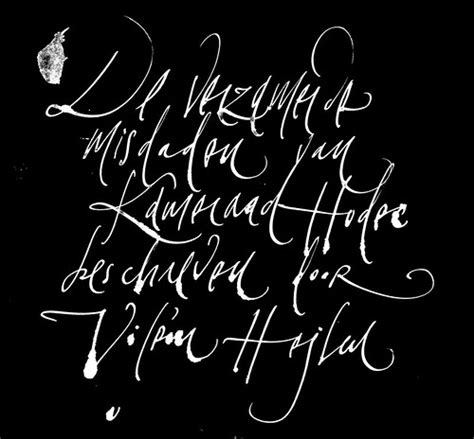 De verzamelde
misdaden van
Kameraad Hodoc
beschreven door
Vilém Hejkal